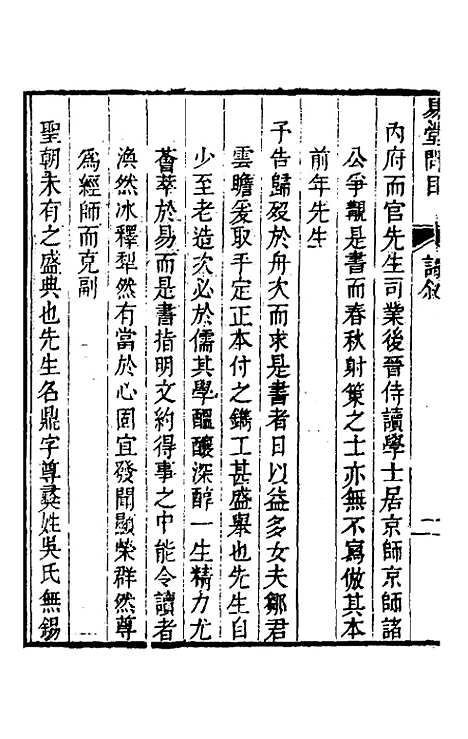 易堂問目
讀敘
二
內府而官先生司業後晉侍讀學士居京師京師諸
公爭覯是書而春秋射策之士亦無不寫倣其本
前年先生
予告歸歿於舟次而求是書者日以益多女夫鄒君
雲瞻爰取手定正本付之鐫工甚盛舉也先生自
少至老造次必於儒其學醞釀深醇一生精力尤
薈萃於易而是書指明文約得事之中能令讀者
渙然冰釋犁然有當於心固宜發聞顯榮群然尊
為經師而克副
聖朝未有之盛典也先生名鼎字尊彝姓吳氏無錫